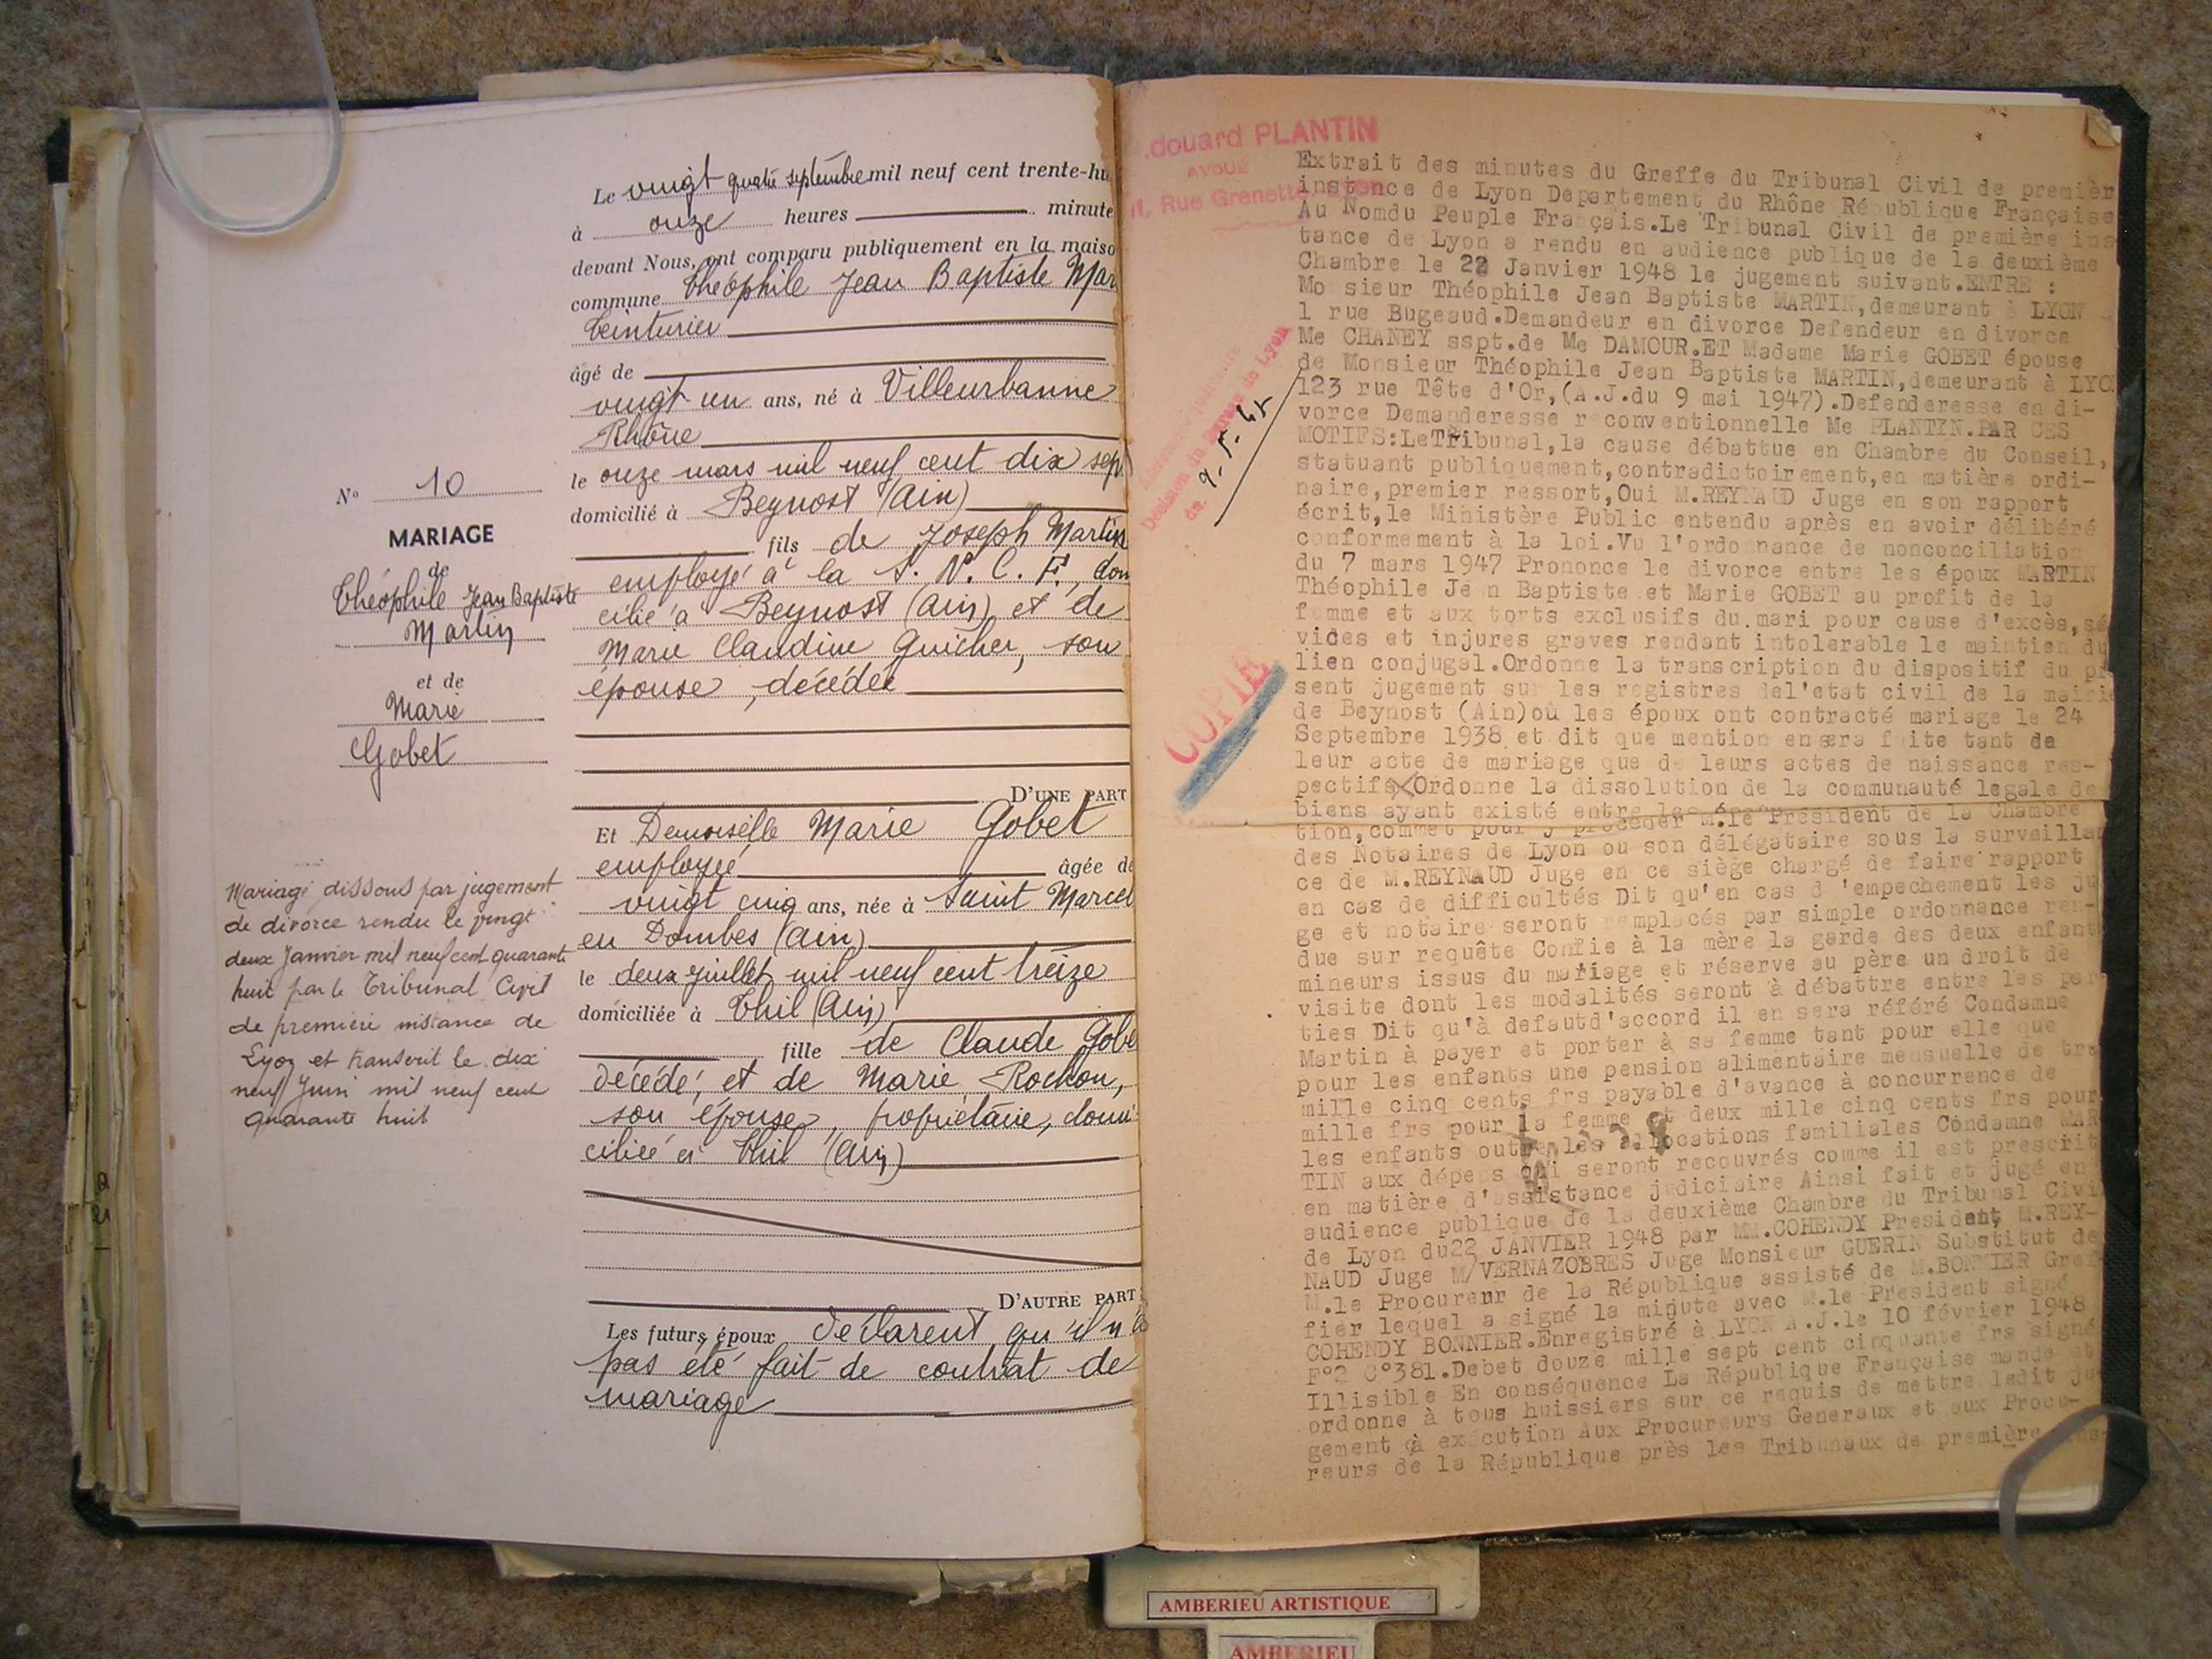 Le vingt quatre septembre mil neuf cent trente-hu
à onze heures minute
devant Nous, ont comparu publiquement en la maiso
commune Théophile Jean Baptiste Mar
teinturier
âgé de
vingt un ans, né à Villeurbanne
Rhône
le onze mars mil neuf cent dix sep
domicilié à Beynost (Ain)
fils de Joseph Martin
employé à la S. N. C. F., dom
cilié à Beynost (Ain) et de
Marie Claudine Guicher, son
épouse, décédée
D'UNE PART
Et Demoiselle Marie Gobet
employée âgée de
vingt cinq ans, née à Saint Marcel
en Dombes (Ain)
le deux juillet mil neuf cent treize
domiciliée à Thil (Ain)
fille de Claude Gobe
décédé, et de Marie Rochon,
son épouse, propriétaire, domi
ciliée à Thil (Ain)
D'AUTRE PART
Les futurs époux déclarent qu'il n'a
pas été fait de contrat de
mariage
N° 10
MARIAGE
de
Théophile Jean Baptiste
Martin
et de
Marie
Gobet
Mariage dissous par jugement
de divorce rendu le vingt
deux Janvier mil neuf cent quarante
huit par le Tribunal Civil
de première instance de
Lyon et transcrit le dix
neuf Juin mil neuf cent
quarante huit
.douard PLANTIN
AVOUÉ
11, Rue Grenette
Décision du Bureau de Lyon
du 9-5-47
COPIE
Extrait des minutes du Greffe du Tribunal Civil de premièr
instance de Lyon Departement du Rhône République Française
Au Nomdu Peuple Français.Le Tribunal Civil de première ins
tance de Lyon a rendu en audience publique de la deuxième
Chambre le 22 Janvier 1948 le jugement suivant.ENTRE :
Mo sieur Théophile Jean Baptiste MARTIN,demeurant à LYON
1 rue Bugeaud.Demandeur en divorce Defendeur en divorce
Me CHANEY sspt.de Me DAMOUR.ET Madame Marie GOBET épouse
de Monsieur Théophile Jean Baptiste MARTIN,demeurant à LYO
123 rue Tête d'Or,(A.J.du 9 mai 1947).Defenderesse en di-
vorce Demanderesse reconventionnelle Me PLANTIN.PAR CES
MOTIFS:LeTribunal,la cause débattue en Chambre du Conseil,
statuant publiquement,contradictoirement,en matière ordi-
naire,premier ressort,Oui M.REYNAUD Juge en son rapport
écrit,le Ministère Public entendu après en avoir délibéré
conformement à la loi.Vu l'ordonnance de nonconciliation
du 7 mars 1947 Prononce le divorce entre les époux MARTIN
Théophile Je n Baptiste et Marie GOBET au profit de la
femme et aux torts exclusifs du mari pour cause d'excès,sé
vides et injures graves rendant intolerable le maintien du
lien conjugal.Ordonne la transcription du dispositif du pr
sent jugement sur les registres del'etat civil de la mairie
de Beynost (Ain)où les époux ont contracté mariage le 24
Septembre 1938 et dit que mention ensera faite tant de
leur acte de mariage que de leurs actes de naissance res-
pectifs Ordonne la dissolution de la communauté legale de
biens ayant existé entre les
tion,commet pour y procéder M.le President de la Chambre
des Notaires de Lyon ou son délégataire sous la surveillan
ce de M.REYNAUD Juge en ce siège chargé de faire rapport
en cas de difficultés Dit qu'en cas d 'empechement les ju
ge et notaire seront remplacés par simple ordonnance ren-
due sur requête Confie à la mère la garde des deux enfant
mineurs issus du mariage et réserve au père un droit de
visite dont les modalités seront à débattre entre les par
ties Dit qu'à defautd'accord il en sera référé Condamne
Martin à payer et porter à sa femme tant pour elle que
pour les enfants une pension alimentaire mensuelle de tro
mille cinq cents frs payable d'avance à concurrence de
mille frs pour la femme et deux mille cinq cents frs pour
les enfants outre les allocations familiales Condamne MAR
TIN aux dépens qui seront recouvrés comme il est prescrit
en matière d'assistance judiciaire Ainsi fait et jugé en
audience publique de la deuxième Chambre du Tribunal Civi
de Lyon du22 JANVIER 1948 par MM.COHENDY President, M.REY-
NAUD Juge M/VERNAZOBRES Juge Monsieur GUERIN Substitut de
M.le Procureur de la République assisté de M.BONNIER Gref
fier lequel a signé la minute avec M.le President signé
COHENDY BONNIER.Enregistré à LYON A.J.le 10 février 1948
F°2 C°381.Debet douze mille sept cent cinquante frs signé
Illisible En conséquence La République Française mande et
ordonne à tous huissiers sur ce requis de mettre ledit ju
gement à exécution Aux Procureurs Generaux et aux Procu-
reurs de la République près les Tribunaux de première ins
AMBERIEU ARTISTIQUE
AMBERIEU